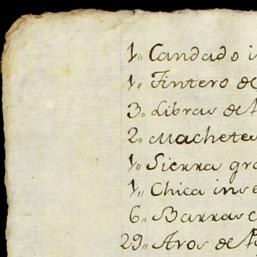 1,, Candado i
1,, Tintero de
3,, Libras de A
2,, Machetes
1,, Sierra gra
1,, Chica ins
6,, Barras c
29,, Aros de